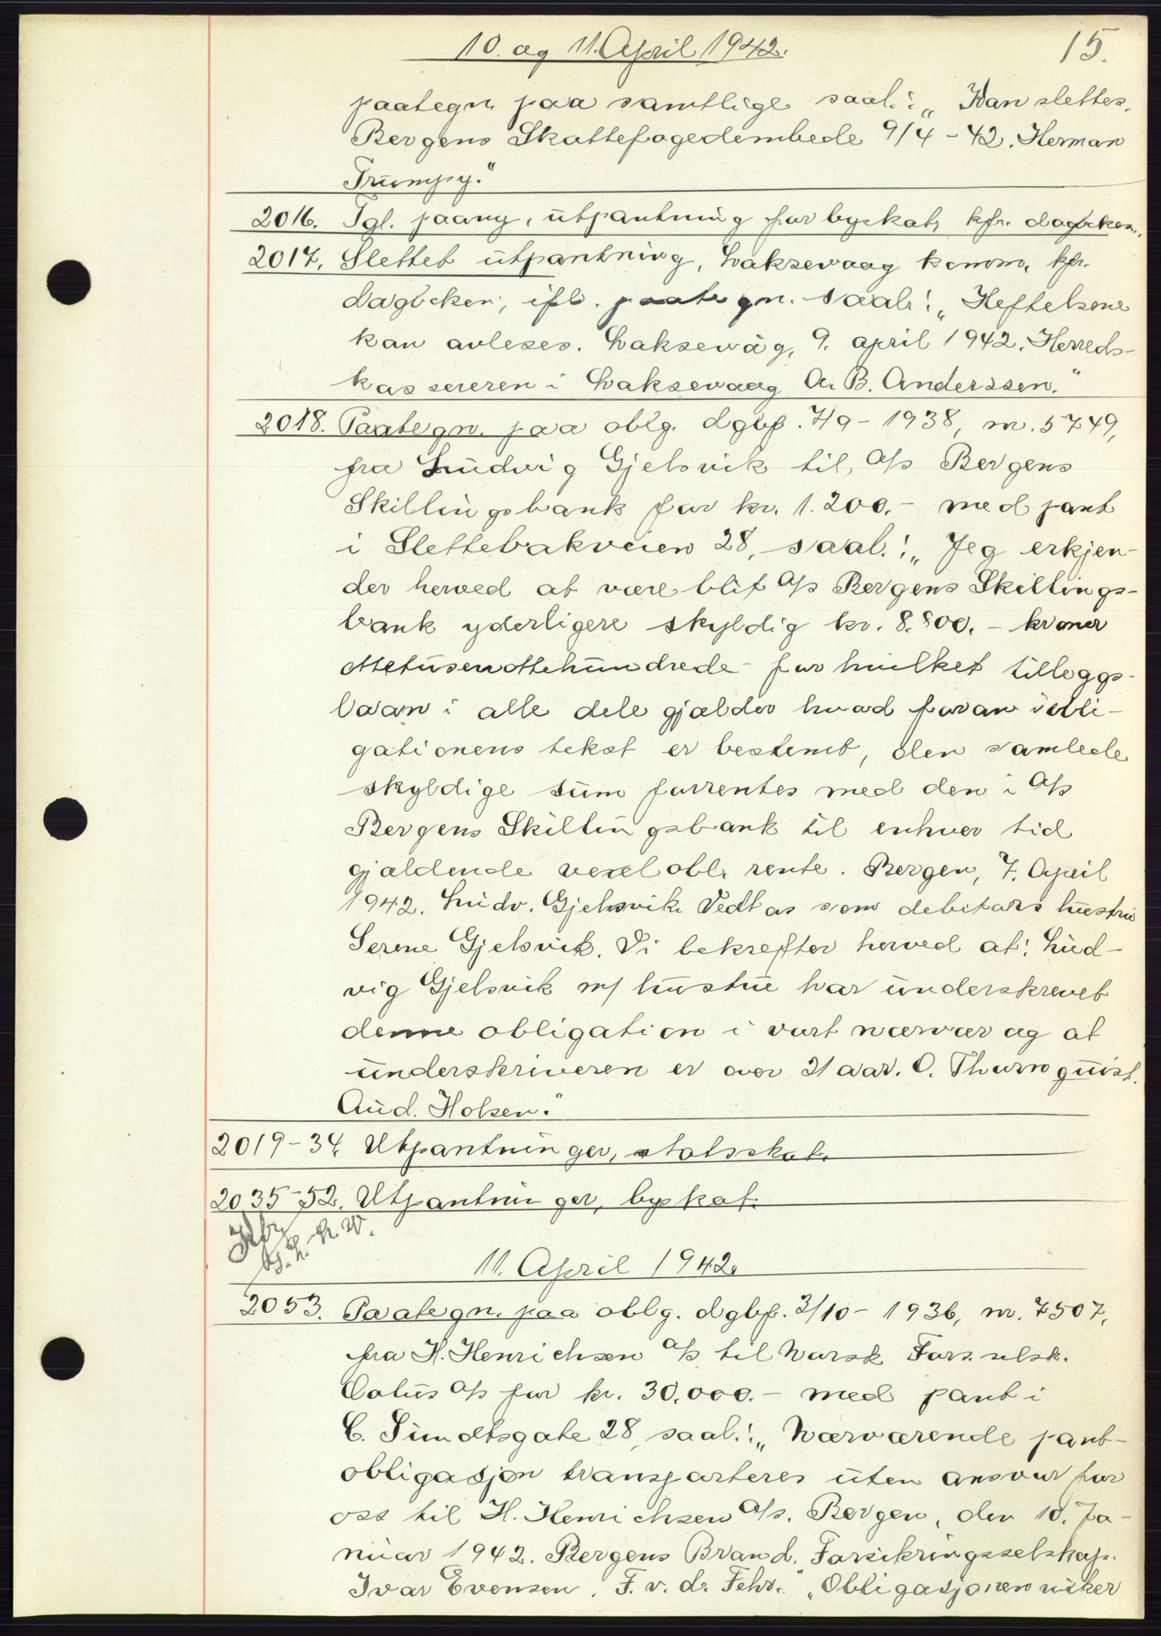 10. og 11. April 1942.
15.
paategn. paa samtlige saal.: „Kan slettes.
Bergens Skattefogedembede 9/4 - 42. Herman
Trumpy."
2016. Tgl. paang. utpantning for byskat, kfr. dagboken.
2017. Slettet utpantning, Laksevaag komm. kfr.
dagboken, ifl. paategn. saal.: „Heftelsene
kan avleses. Laksevåg, 9. april 1942. Herreds-
kassereren i Laksevaag A. B. Anderssen."
2018. Paategn. paa oblg. dgbf. 7/9 - 1938, nr. 5749,
fra Ludvig Gjelsvik til A/s Bergens
Skillingsbank for kr. 1.200.- med pant
i Slettebakveien 28, saal.: „Jeg erkjen-
der herved at være blit A/s Bergens Skillings-
bank yderligere skyldig kr. 8.800.- kroner
ottetusenottehundrede - for hvilket tilleggs-
laan i alle dele gjælder hvad foran i obli-
gationens tekst er bestemt, den samlede
skyldige sum forrentes med den i A/s
Bergens Skillingsbank til enhver tid
gjældende vexelobl. rente. Bergen, 7. April
1942. Ludv. Gjelsvik. Vedtas som debitors hustru
Serine Gjelsvik. Vi bekrefter herved at: Lud-
vig Gjelsvik m/ hustru har underskrevet
denne obligation i vort nærvær og at
underskriveren er over 21 aar. O. Thurnquist.
Aud. Holsen."
2019-34. Utpantninger, statsskat.
2035-52. Utpantninger, byskat.
11. April 1942.
2053. Paategn. paa oblg. dgbf. 2/10 - 1936, nr. 7507,
fra H. Henrichsen A/s til Norsk Fors. selsk.
Volus A/s for kr. 30.000.- med pant i
C. Sundtsgate 28, saal.: „Nærværende pant-
obligasjon transporteres uten ansvar for
oss til H. Henrichsen A/s. Bergen, den 10. Ja-
nuar 1942. Bergens Brand. Forsikringsselskap.
Ivar Evensen. F. v. d. Fehr." „Obligasjonen viker